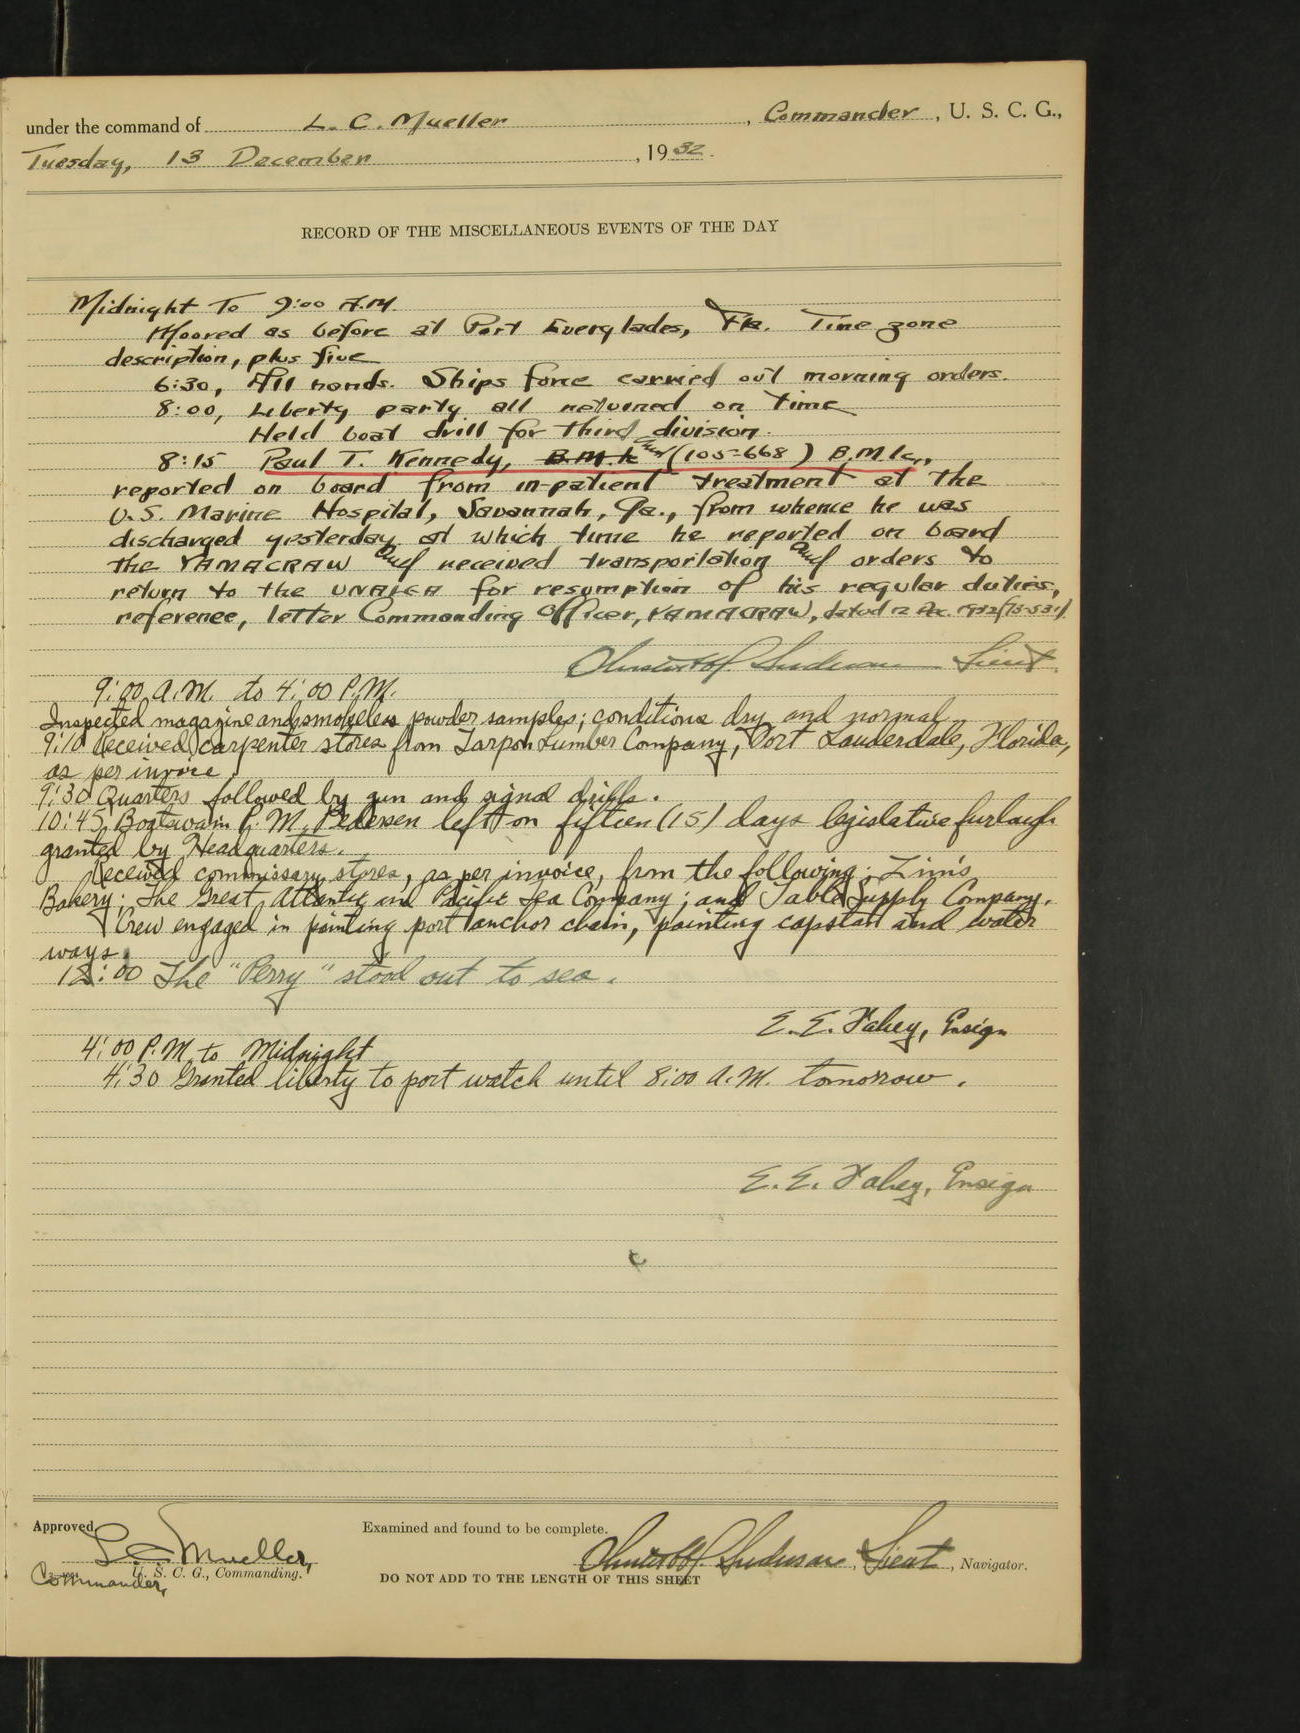 under the command of L. C. Mueller, Commander, U. S. C. G.,
Tuesday, 13 December, 1932.
RECORD OF THE MISCELLANEOUS EVENTS OF THE DAY
Midnight To 9:00 A.M.
Moored as before at Port Everglades, Fla. Time zone
description, plus five
6:30, All hands. Ships force carried out morning orders.
8:00, Liberty party all returned on time
Held boat drill for third division.
8:15 Paul T. Kennedy, B.M.1c (105-668) B.M.1c.,
reported on board from in-patient treatment at the
U.S. Marine Hospital, Savannah, Ga., from whence he was
discharged yesterday at which time he reported on board
the YAMACRAW and received transportation and orders to
return to the UNALGA for resumption of his regular duties,
reference, letter Commanding Officer, YAMACRAW, dated 12 Dec. 1932
Lieut.
9:00 A.M. to 4:00 P.M.
Inspected magazine and smokeless powder samples; conditions dry and normal
9:10 Received carpenter stores from Tarpon Lumber Company, Fort Lauderdale, Florida,
as per invoice.
9:30 Quarters followed by gun and signal drills.
10:45 Boatswain P. M. Pedersen left on fifteen (15) days legislative furlough
granted by Headquarters.
Received commissary stores, as per invoice, from the following: Zim's
Bakery; The Great Atlantic and Pacific Tea Company; and Table Supply Company.
Crew engaged in painting port anchor chain, painting capstan and water
ways.
12:00 The "Perry" stood out to sea.
E. E. Fahey, Ensign
4:00 P.M. to Midnight
4:30 Granted liberty to port watch until 8:00 A.M. tomorrow.
E. E. Fahey, Ensign
Approved
L. C. Mueller,
Commander, U. S. C. G., Commanding.
Examined and found to be complete.
Lieut, Navigator.
DO NOT ADD TO THE LENGTH OF THIS SHEET